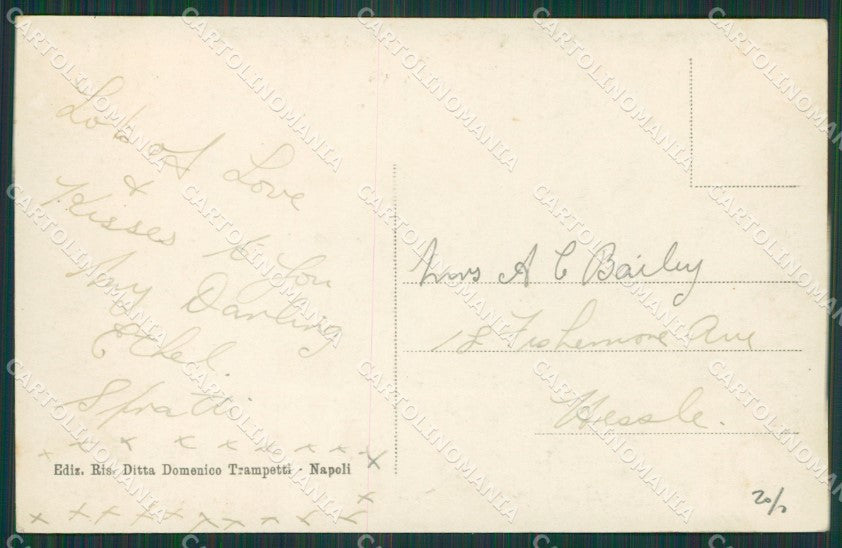 Lots of Love
&
Kisses to You
My Darling
Ethel.
x x x x x x x x x x
Ediz. Ris. Ditta Domenico Trampetti - Napoli
x
x x x x x x x x x x
Mrs A C Bailey
18 Ave
Hessle.
20/
CARTOLINOMANIA